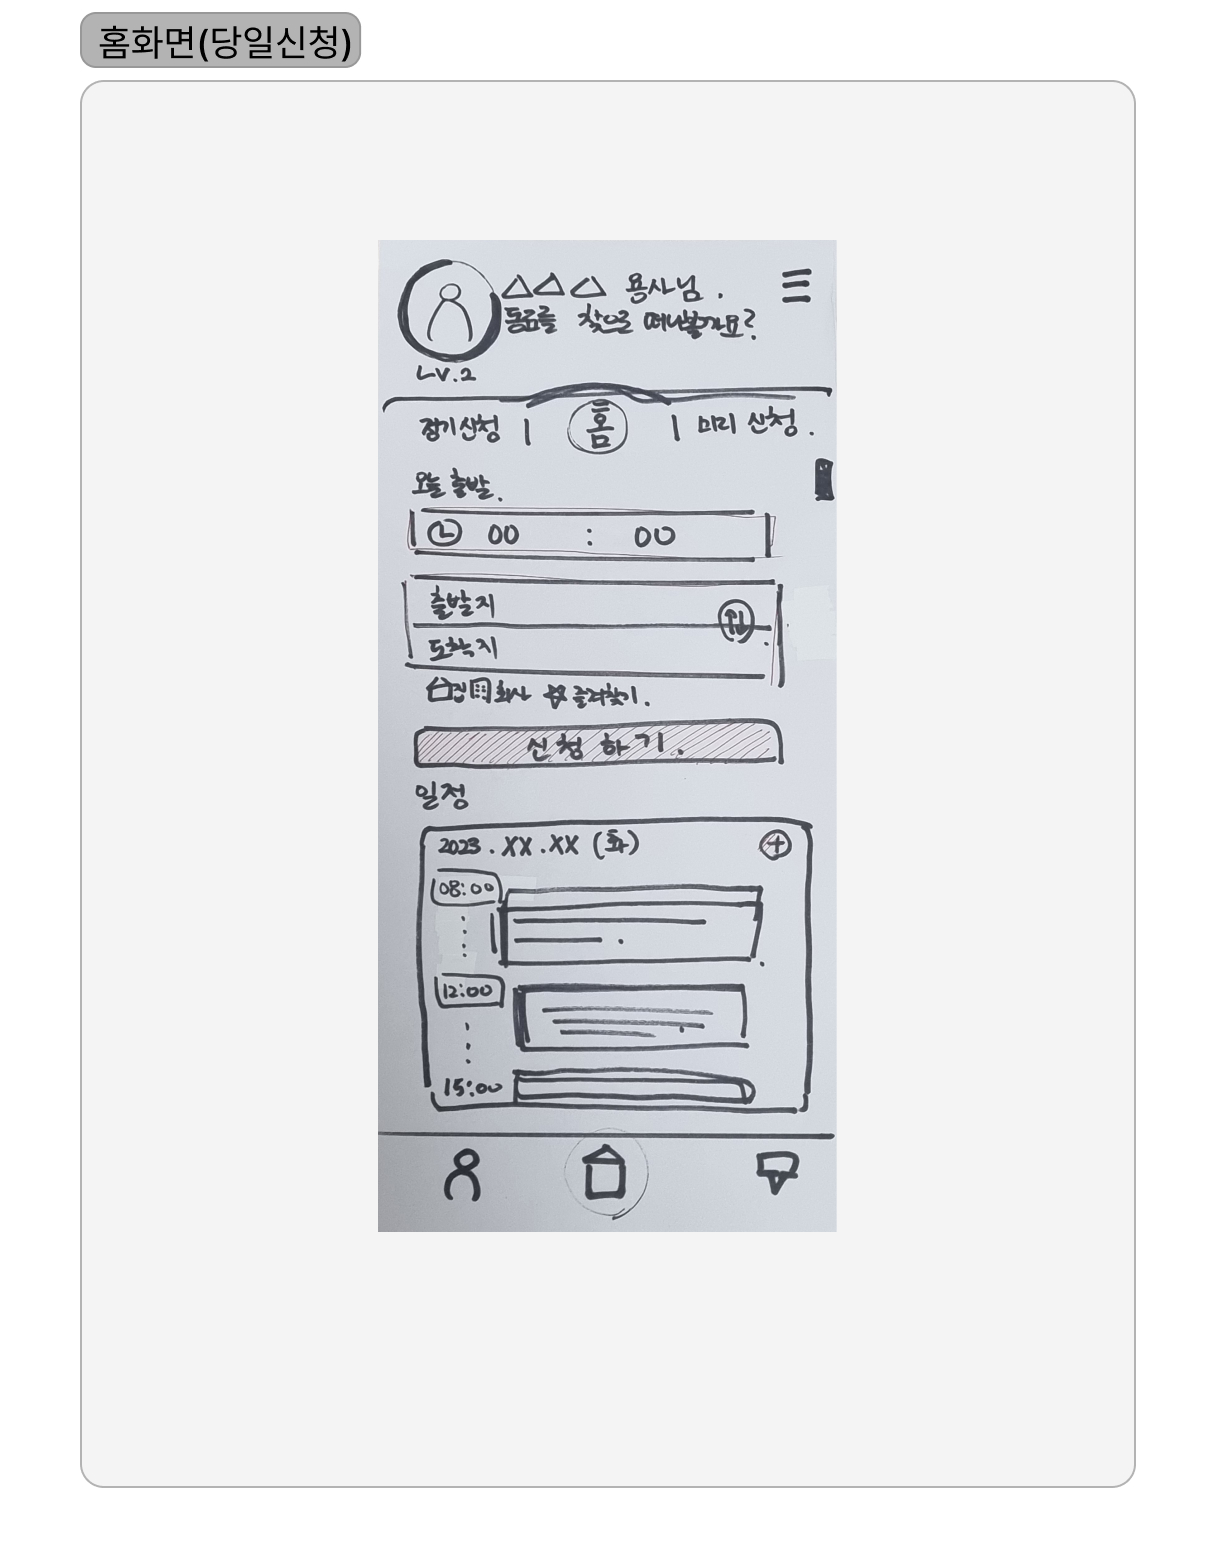 홈화면(당일신청)
△△△ 용사님.
동료를 찾으로 떠나볼까요?
LV.2
정기신청 | 홈 | 미리 신청.
오늘 출발.
00 : 00
출발지
도착지
집 회사 즐겨찾기.
신청 하기.
일정
2023.XX.XX (화)
08:00
12:00
15:00